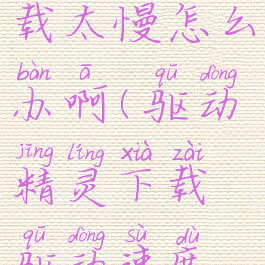 载太慢怎么
bàn ā qū dòng
办啊(驱动
jīng líng xià zài
精灵下载
qū dòng sù dù
驱动速度